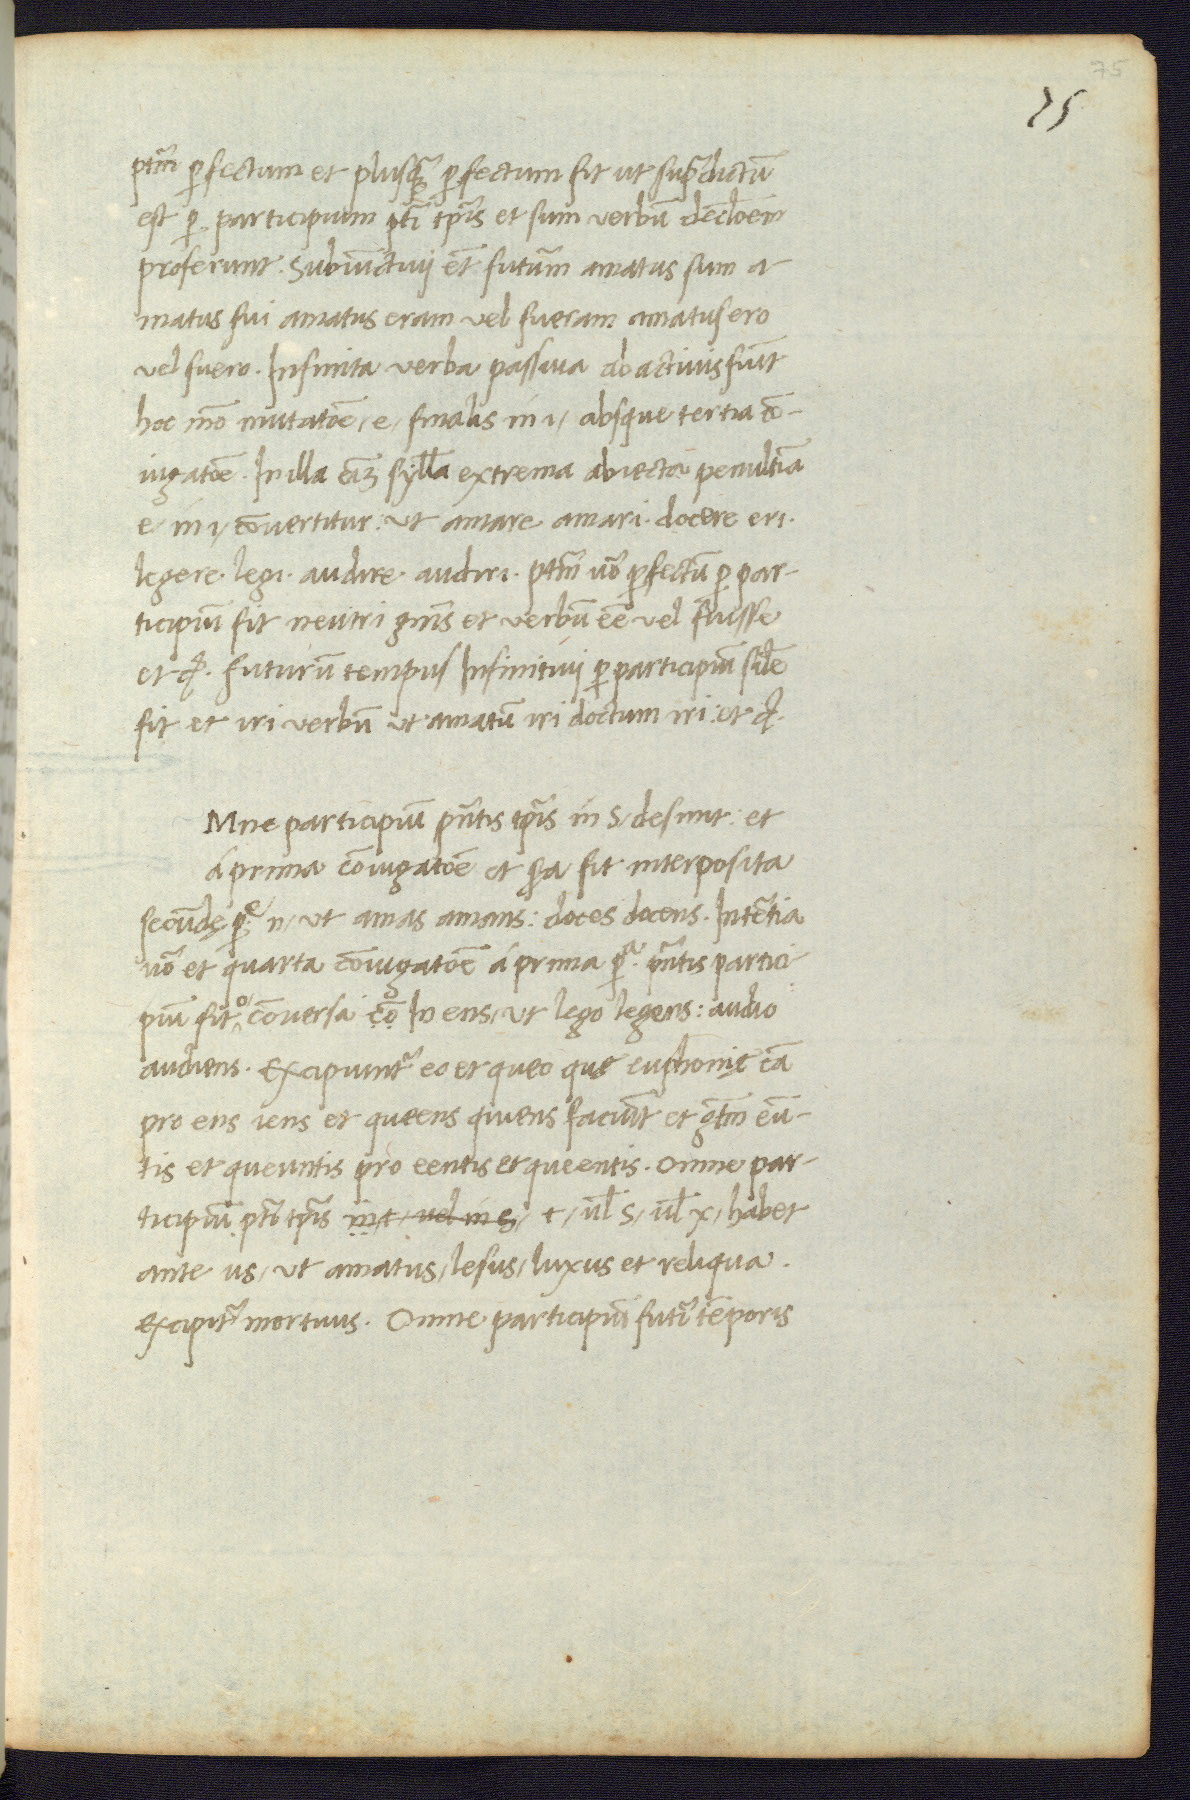 75
75
ptũm ꝑfectum et plusq̃ ꝑfectum fit ut supᵃdictũ
est ꝑ participium ptĩ tp̃is et sum verbũ decl̃oem
proferunt. Subiũctiui et̃ futũm amatus sum a-
matus fui amatus eram vel fueram amatus ero
vel fuero. Infinita verba passiua ab actiuis fiũt
hoc mõ mutatõe, e, finalis in i, absque tertia cõ-
iugatõe. In illa em̃ syll̃a extrema abiecta penultĩa
e in i, cõuertitur. ut amare amari. docere eri.
legere. legi. audire. audiri. ptũm uõ ꝑfectũ ꝑ par-
ticipiũ fit neutri gñis et verbũ eẽ vel fuisse
et q̃. Futurũ tempus Infinitiui ꝑ participiũ sil̃e
fit et iri verbũ ut amatũ iri doctum iri. et q̃.
Mne participiũ pñtis tp̃is in S, desinit: et
á prima cõiugatõe et scḋa fit interposita
secũdę ꝑᵉ n, ut amas amans: doces docens. In tẽtia
uõ et quarta cõiugatõe á prima ꝑᵃ. pñtis partici
piũ fit, o conuersa cõ In ens, ut lego legens: audio
audiens. Excipiunt̃ eo et queo quę euphonię cã
pro ens iens et queens quiens faciũt et gt̃m eũ-
tis et queuntis pro eentis et queentis. Omne par-
ticipiũ ptĩ tp̃is in t, vel in s, t, ul̃ S, ul̃ x, habet
ante us, ut amatus, lesus, luxus et reliqua.
Excipit̃ mortuus. Omne participiũ futĩ tẽporis